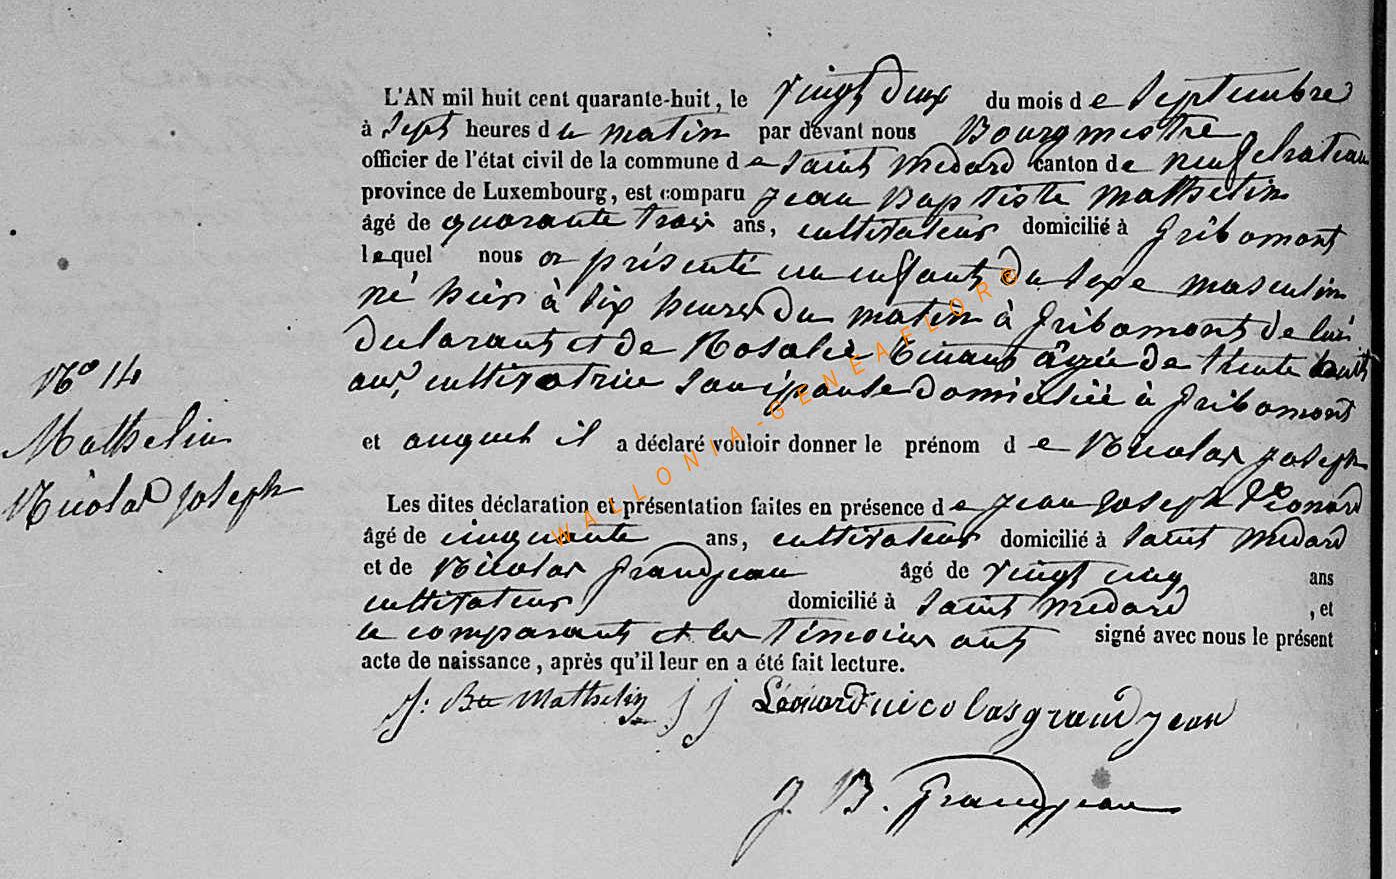 L'AN mil huit cent quarante-huit, le vingt deux du mois de Septembre
à Sept heures du matin par devant nous Bourgmestre
officier de l'état civil de la commune de Saint Medard canton de neufchateau
province de Luxembourg, est comparu Jean Baptiste Mathelin
âgé de quarante trois ans, cultivateur domicilié à Gribomont
lequel nous a présenté un enfant du sexe masculin
né hier à six heures du matin à Gribomont de lui
declarant et de Rosalie Tinant âgée de trente huit
ans, cultivatrice son épouse domiciliée à Gribomont
N° 14
Mathelin
Nicolas Joseph
et auquel il a déclaré vouloir donner le prénom de Nicolas Joseph
Les dites déclaration et présentation faites en présence de Jean Joseph Léonard
âgé de cinquante ans, cultivateur domicilié à Saint Medard
et de Nicolas Grandjean âgé de vingt cinq ans
cultivateur domicilié à Saint Medard , et
le comparant et les témoins ont signé avec nous le présent
acte de naissance, après qu'il leur en a été fait lecture.
J: Bte Mathelin j j Léonard nicolas grandjean
J. B. Grandjean
WALLONIA-GENEAFLORE